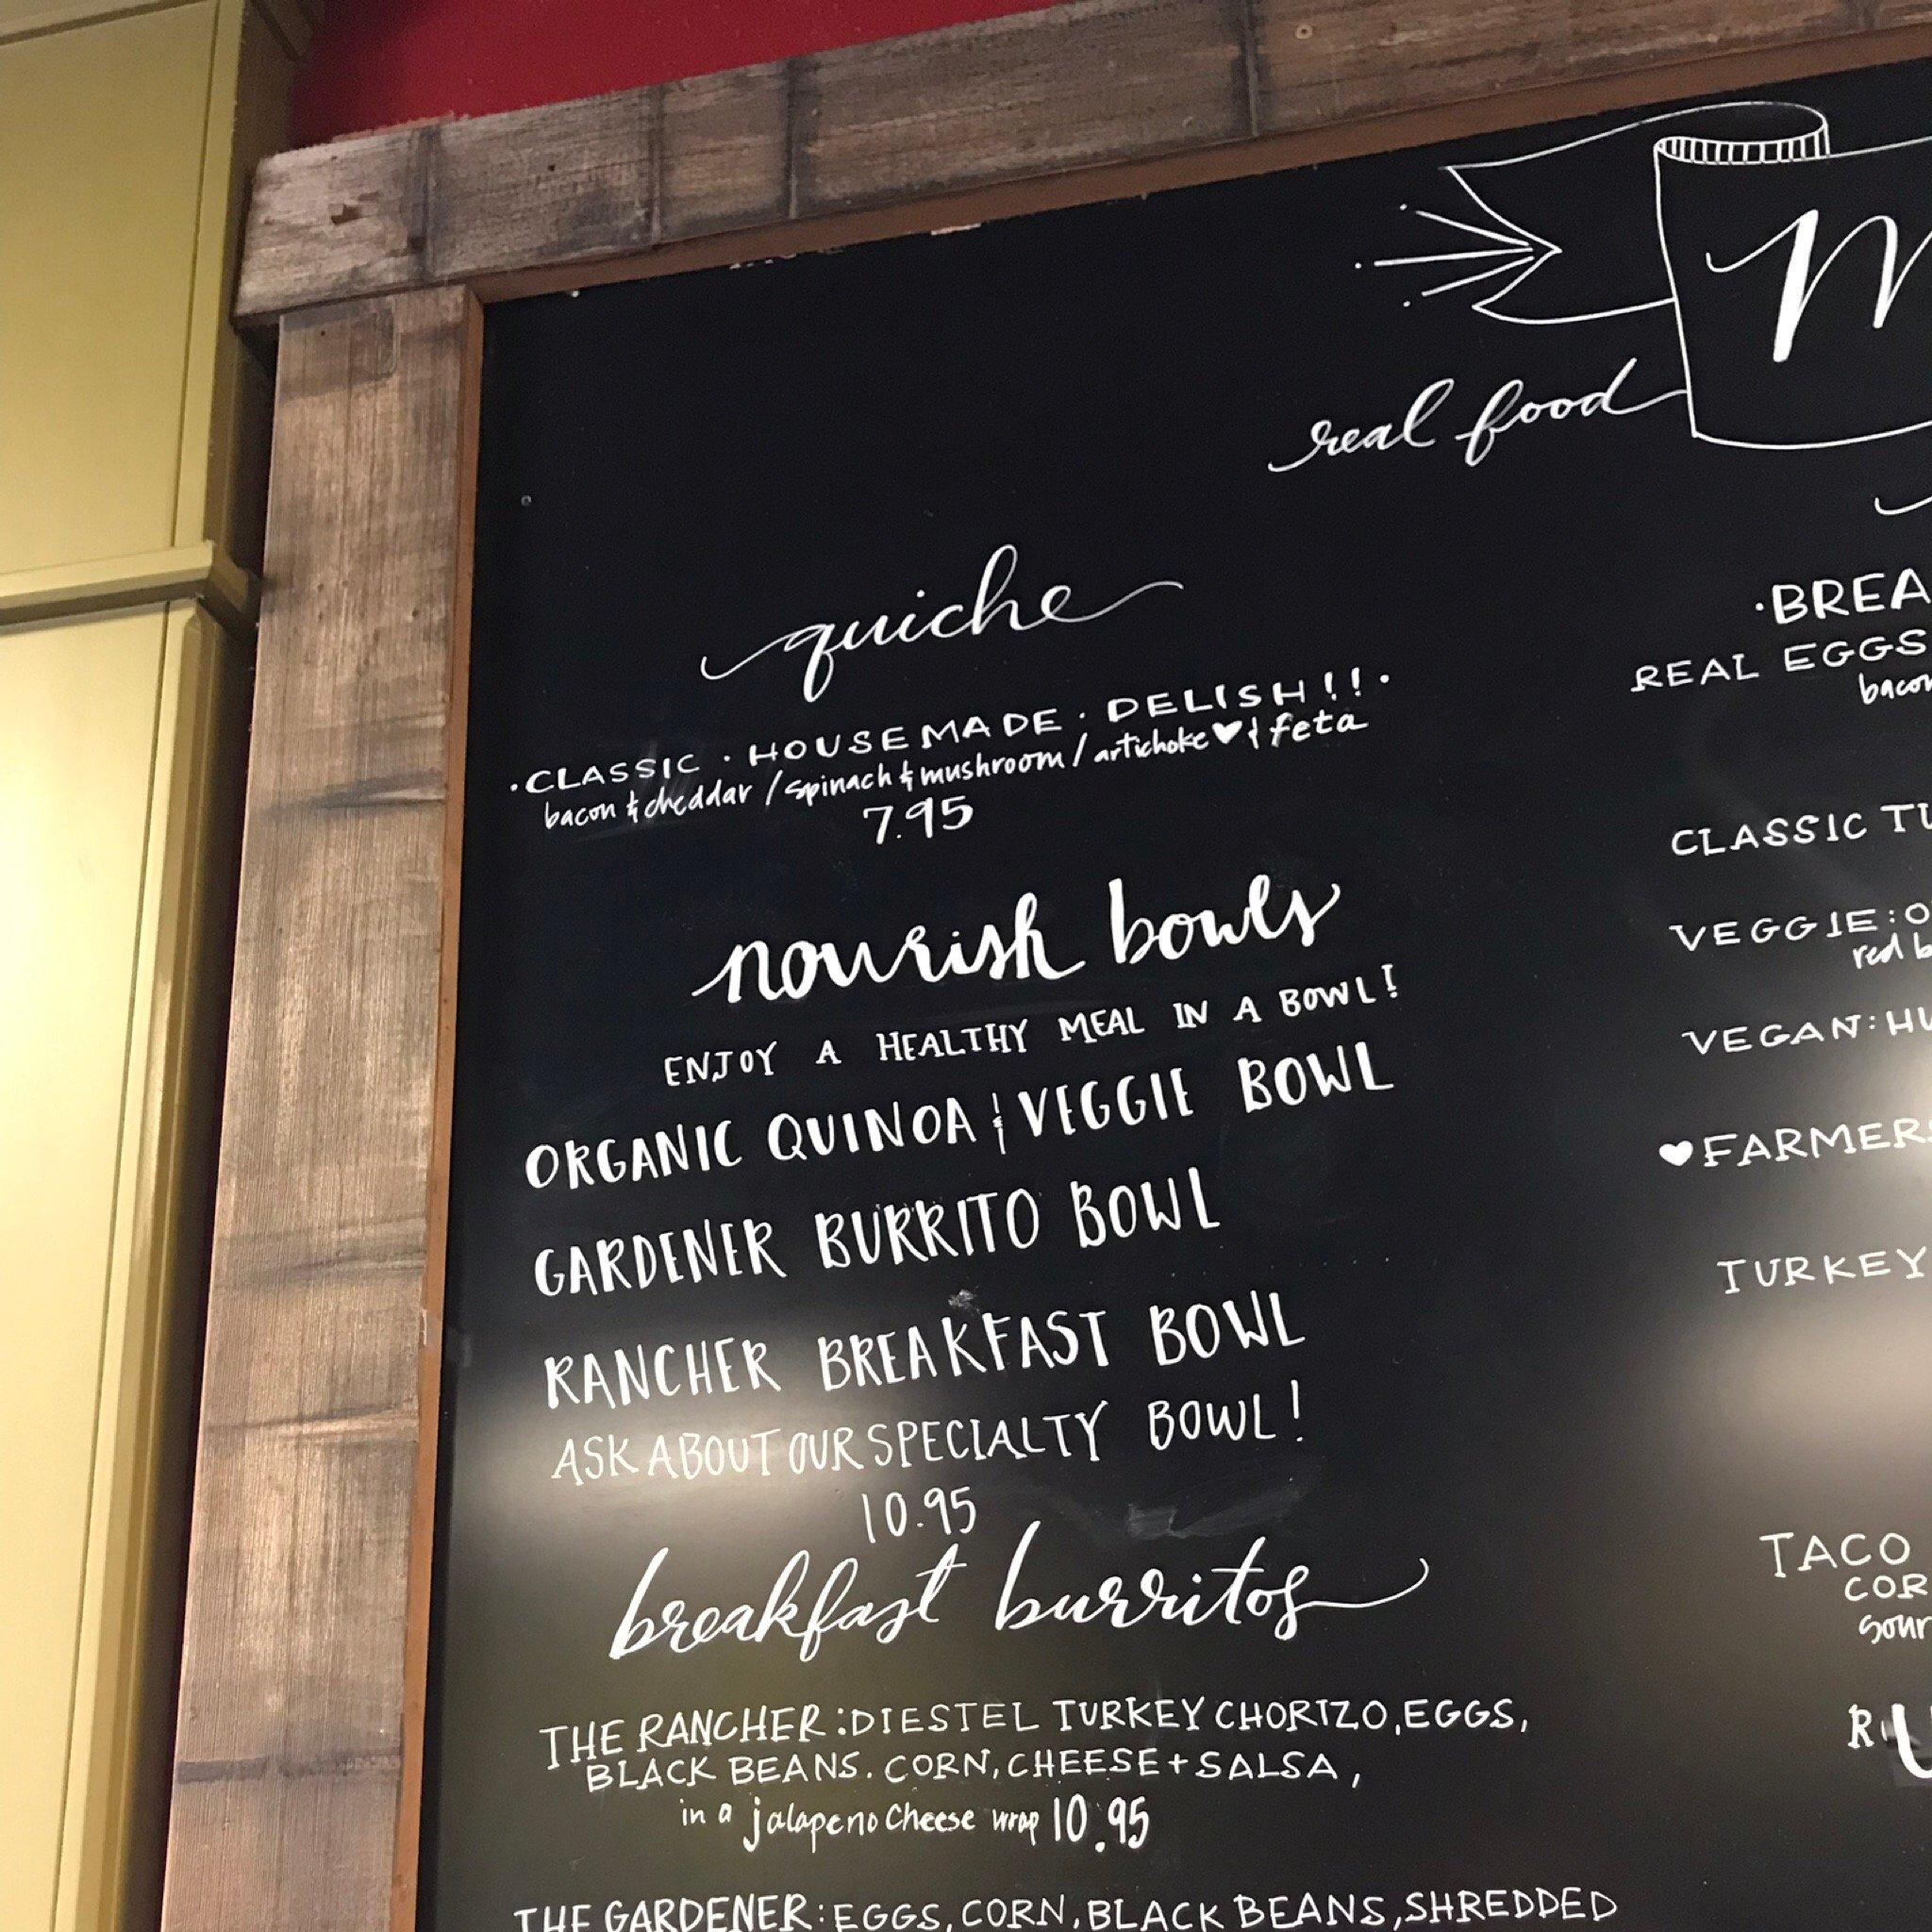 real food
quiche
·CLASSIC · HOUSEMADE · DELISH!!·
bacon & cheddar / spinach & mushroom / artichoke ♥ & feta
7.95
nourish bowls
ENJOY A HEALTHY MEAL IN A BOWL!
ORGANIC QUINOA & VEGGIE BOWL
GARDENER BURRITO BOWL
RANCHER BREAKFAST BOWL
ASK ABOUT OUR SPECIALTY BOWL!
10.95
breakfast burritos
THE RANCHER: DIESTEL TURKEY CHORIZO, EGGS,
BLACK BEANS. CORN, CHEESE + SALSA,
in a jalapeno cheese wrap 10.95
THE GARDENER: EGGS, CORN, BLACK BEANS, SHREDDED
REAL EGGS
CLASSIC
VEGGIE:
red
VEGAN:
♥FARMERS
TURKEY
TACO